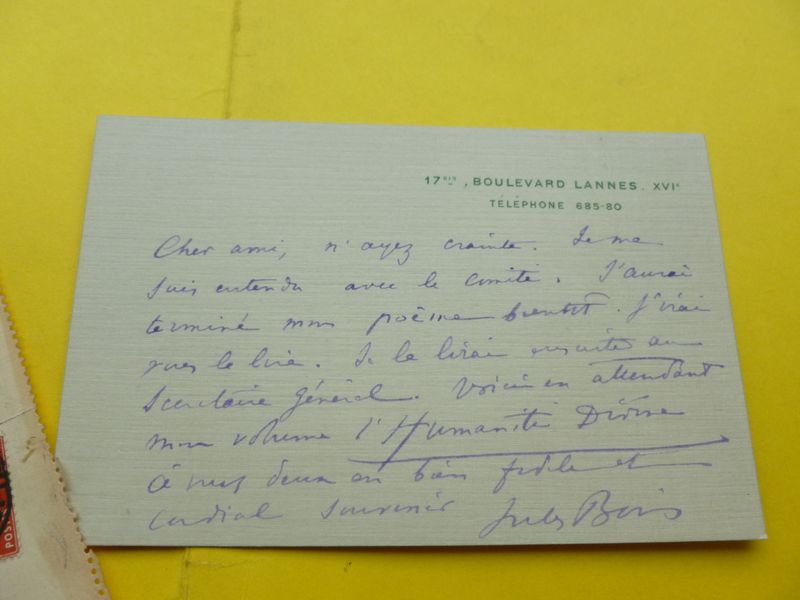 17 BIS, BOULEVARD LANNES. XVIe
TÉLÉPHONE 685-80
Cher ami, n'ayez crainte. Je me
suis entendu avec le comité. J'aurai
terminé mon poème bientôt. J'irai
vous le lire. Je le lirai ensuite au
Secrétaire Général. Voici en attendant
mon volume l'Humanité Divine
à vous deux en bien fidèle et
cordial souvenir Jules Bois
POST